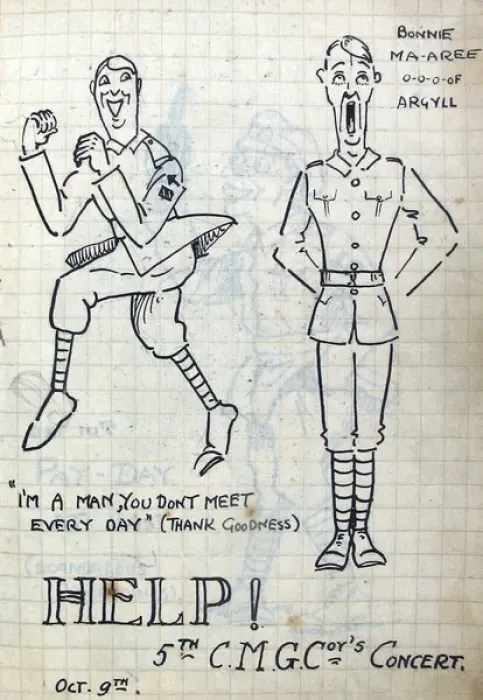 BONNIE
MA-AREE
O-O-O-OF
ARGYLL
"I'M A MAN, YOU DONT MEET
EVERY DAY" (THANK GOODNESS)
PAY-DAY
HELP!
5TH C.M.G.Coy's CONCERT.
OCT. 9TH.